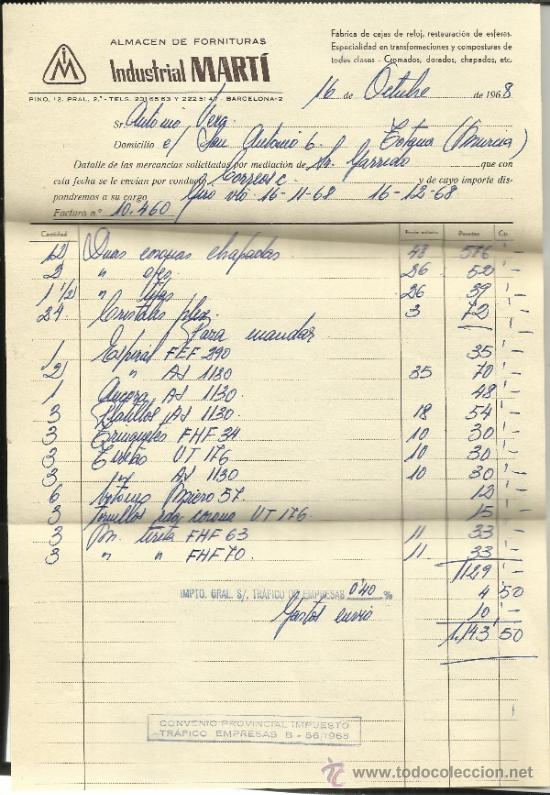 ALMACEN DE FORNITURAS
Industrial MARTÍ
PINO, 12, PRAL. 2.ª - TELS. 231 65 63 Y 222 51 47 - BARCELONA-2
Fábrica de cajas de reloj, restauración de esferas.
Especialidad en transformaciones y composturas de
todas clases - Cromados, dorados, chapados, etc.
16 de Octubre de 1968
Sr. Antonio Vera
Domicilio c/ San Antonio 6. Totana (Murcia)
Datalle de las mercancías solicitados por mediación de Sr. Garrido que con
esta fecha se le envian por conducto Correos c. y de cuyo importe dis-
pondremos a su cargo Giro vto 16-11-68 16-12-68
Factura n.º 10.460
Cantidad Precio unitario Pesetas Cts.
12 chapadas 48 576 -
2 " 26 52 -
1 1/2 " 26 39 -
24 Cristales plex. 3 72 -
Para mandar
1 Espiral FEF 290 35 -
2 " AS 1130 35 70 -
1 Ancora AS 1130 48 -
3 AS 1130. 18 54 -
3 FHF 34 10 30 -
3 UT 176 10 30 -
3 AS 1130 10 30 -
6 57. 12 -
3 Tornillos corona UT 176. 15 -
3 tireta FHF 63 11 33 -
3 " " FHF 70. 11 33 -
1129 -
IMPTO. GRAL. S/. TRÁFICO DE EMPRESAS 0'40 % 4 50
Gastos envio 10 -
1.143 50
CONVENIO PROVINCIAL IMPUESTO
TRÁFICO EMPRESAS B - 56/1968
www.todocoleccion.net